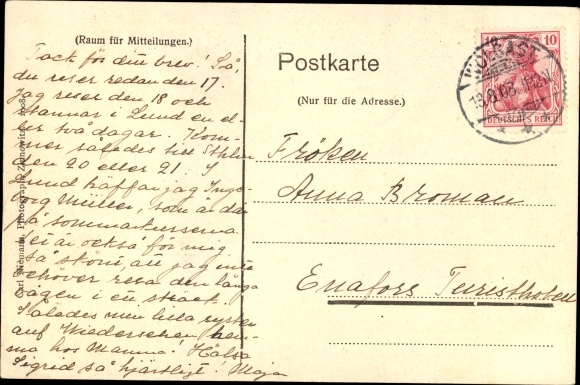 (Raum für Mitteilungen.)
Tack för ditt brev! Så,
du reser redan den 17.
Jag reser den 18 och
stannar i Lund en el-
ler två dagar. Kom-
mer således till Sthlm
den 20 eller 21. I
Lund träffar jag Inge-
borg Müller, som är där
på sommarkurserna.
Det är också för mig
så skönt, att jag inte
behöver resa den långa
vägen i ett sträck.
Således min lilla syster
auf Wiedersehen, hem-
ma hos Mamma! Hälsa
Sigrid så hjärtligt! Maja
Carl Niemann, Photograph, 1908.
Postkarte
(Nur für die Adresse.)
Fröken
Anna Broman
Enafors Turisthotell
10 10
DEUTSCHES REICH
WOLGAST
13.8.08.